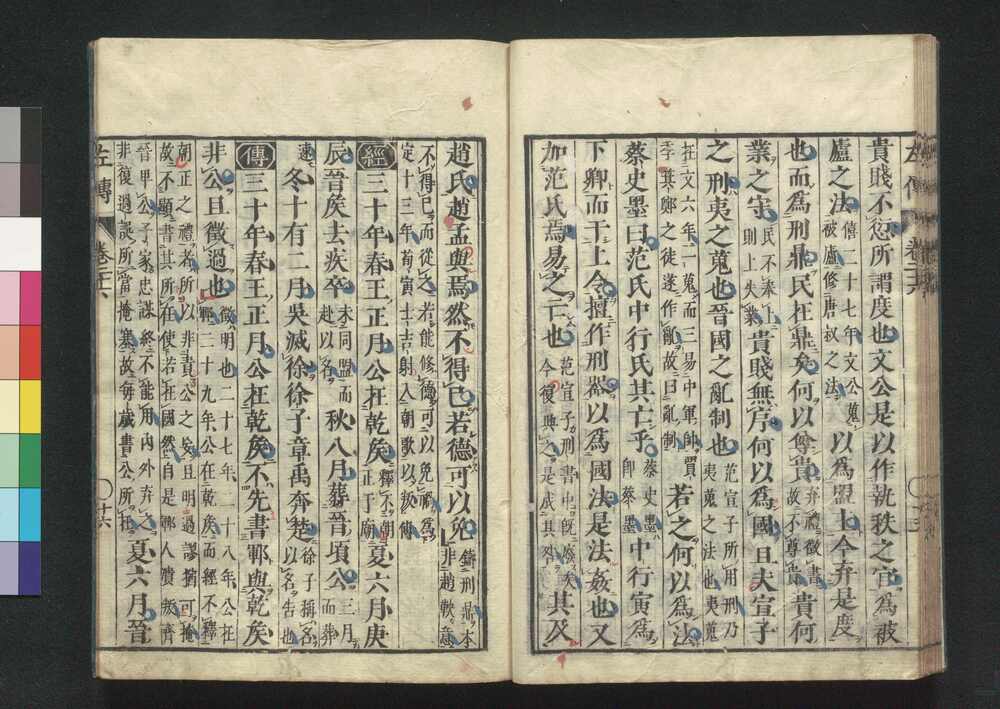 貴賤不愆所謂度也文公是以作執秩之官爲被
廬之法僖二十七年文公蒐被廬修唐叔之法以爲盟主今弃是度
也而爲刑鼎民在鼎矣何以尊貴弃禮徵書故不尊貴貴何
業之守民不奉上則上失業貴賤無序何以爲國且夫宣子
之刑夷之蒐也晉國之亂制也范宣子所用刑乃夷蒐之法也夷蒐
在文六年一蒐而三易中軍帥賈季箕鄭之徒遂作亂故曰亂制若之何以爲法
蔡史墨曰范氏中行氏其亡乎蔡史墨即蔡墨中行寅爲
下卿而干上令擅作刑器以爲國法是法姦也又
加范氏焉易之亡也范宣子刑書中既廢矣今復興之是成其咎其及
趙氏趙孟與焉然不得已若德可以免鑄刑鼎本非趙鞅意
不得已而從之若能修德可以免禍爲定十三年荀寅士吉射入朝歌以叛傳
經三十年春王正月公在乾侯釋不朝正于廟夏六月庚
辰晉侯去疾卒未同盟而赴以名秋八月葬晉頃公三月而葬
速冬十有二月吳滅徐徐子章禹奔楚徐子稱名以名告也
傳三十年春王正月公在乾侯不先書鄆與乾侯
非公且徵過也徵明也二十七年二十八年公在鄆二十九年公在乾侯而經不釋
朝正之禮者所以非責公之妄且明過謬猶可掩故不顯書其所在使若在國然自是鄆人潰叛齊
晉卑公子家忠謀終不能用內外弃之非復過誤所當掩塞故每歲書公所在夏六月晉
左傳
卷二十六
十六